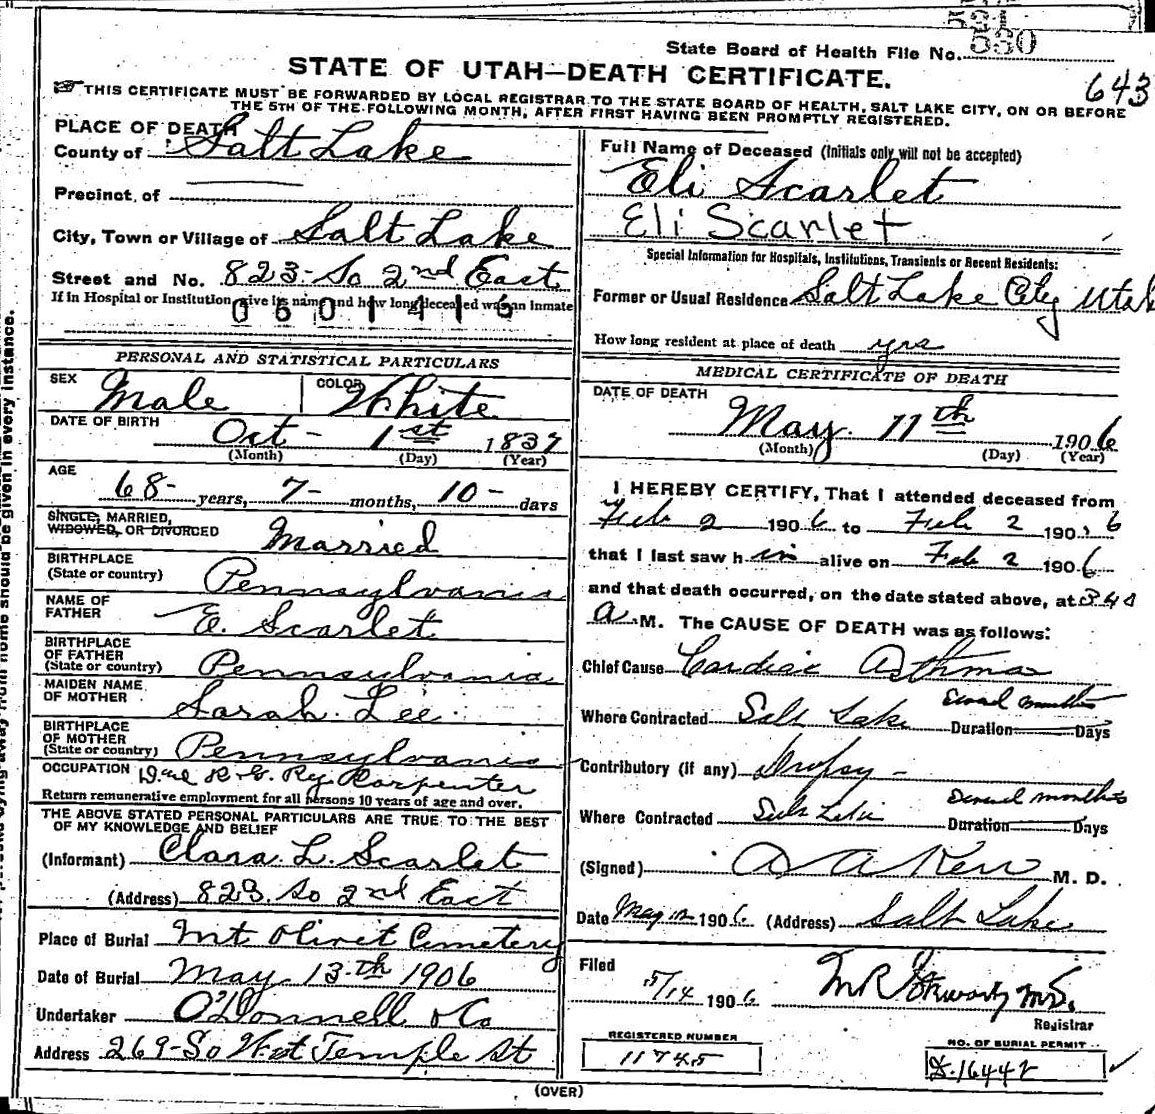 521
530
State Board of Health File No.
STATE OF UTAH—DEATH CERTIFICATE.
643
THIS CERTIFICATE MUST BE FORWARDED BY LOCAL REGISTRAR TO THE STATE BOARD OF HEALTH, SALT LAKE CITY, ON OR BEFORE
THE 5TH OF THE FOLLOWING MONTH, AFTER FIRST HAVING BEEN PROMPTLY REGISTERED.
PLACE OF DEATH
County of Salt Lake
Precinct of
City, Town or Village of Salt Lake
Street and No. 823- So 2nd East
If in Hospital or Institution give its name and how long deceased was an inmate
0601416
PERSONAL AND STATISTICAL PARTICULARS
SEX Male COLOR White
DATE OF BIRTH Oct - 1st 1837
(Month) (Day) (Year)
AGE
68- years, 7- months, 10- days
SINGLE, MARRIED,
WIDOWED, OR DIVORCED Married
BIRTHPLACE
(State or country) Pennsylvania
NAME OF
FATHER E. Scarlet
BIRTHPLACE
OF FATHER
(State or country) Pennsylvania
MAIDEN NAME
OF MOTHER Sarah Lee
BIRTHPLACE
OF MOTHER
(State or country) Pennsylvania
OCCUPATION R. G. Ry Carpenter
Return remunerative employment for all persons 10 years of age and over.
THE ABOVE STATED PERSONAL PARTICULARS ARE TRUE TO THE BEST
OF MY KNOWLEDGE AND BELIEF
(Informant) Clara L. Scarlet
(Address) 823 So 2nd East
Place of Burial Mt Olivet Cemetery
Date of Burial May 13th 1906
Undertaker O'Donnell & Co
Address 269- So West Temple St
Full Name of Deceased (Initials only will not be accepted)
Eli Scarlet
Eli Scarlet
Special Information for Hospitals, Institutions, Transients or Recent Residents:
Former or Usual Residence Salt Lake City Utah
How long resident at place of death yrs
MEDICAL CERTIFICATE OF DEATH
DATE OF DEATH
May 11th 1906
(Month) (Day) (Year)
I HEREBY CERTIFY, That I attended deceased from
Feb 2 1906 to Feb 2 1906
that I last saw him alive on Feb 2 1906
and that death occurred, on the date stated above, at
a.M. The CAUSE OF DEATH was as follows:
Chief Cause Cardiac Asthma
Where Contracted Salt Lake Duration Several months Days
Contributory (if any) Dropsy -
Where Contracted Salt Lake Duration Several months Days
(Signed) M. D.
Date May 12 1906 (Address) Salt Lake
Filed
5/14 1906
Registrar
REGISTERED NUMBER
11745
NO. OF BURIAL PERMIT
D.16442
(OVER)
should be given in every instance.